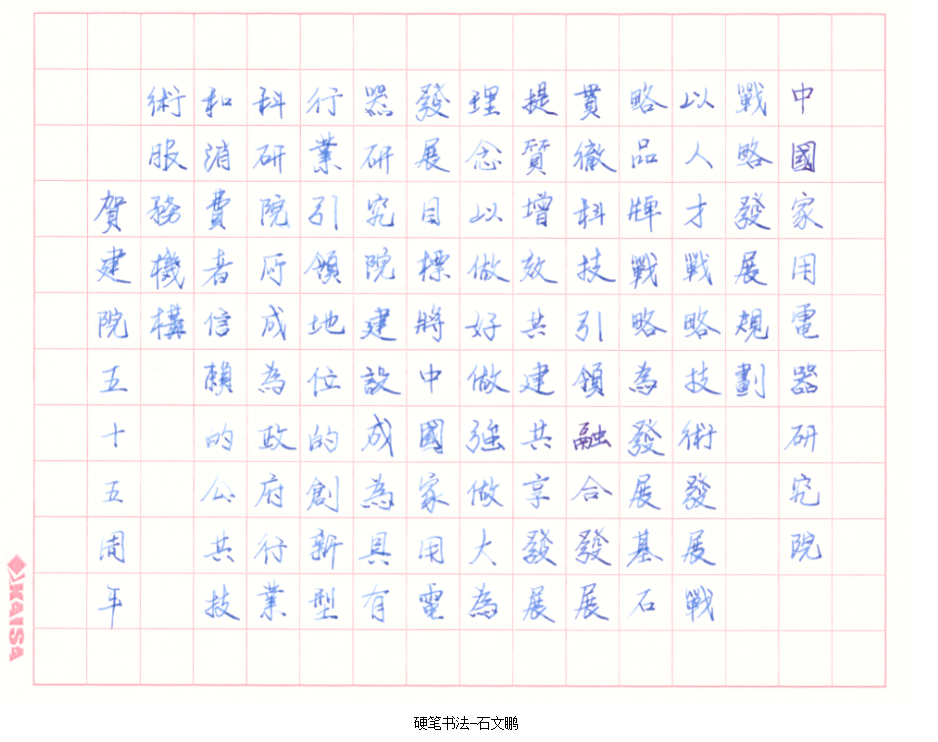 中國家用電器研究院
戰略發展規劃
以人才戰略技術發展戰
略品牌戰略為發展基石
貫徹科技引領融合發展
提質增效共建共享發展
理念以做好做强做大為
發展目標將中國家用電
器研究院建設成為具有
行業引領地位的創新型
科研院所成為政府行業
和消費者信賴的公共技
術服務機構
賀建院五十五周年
KAISA
硬笔书法-石文鹏